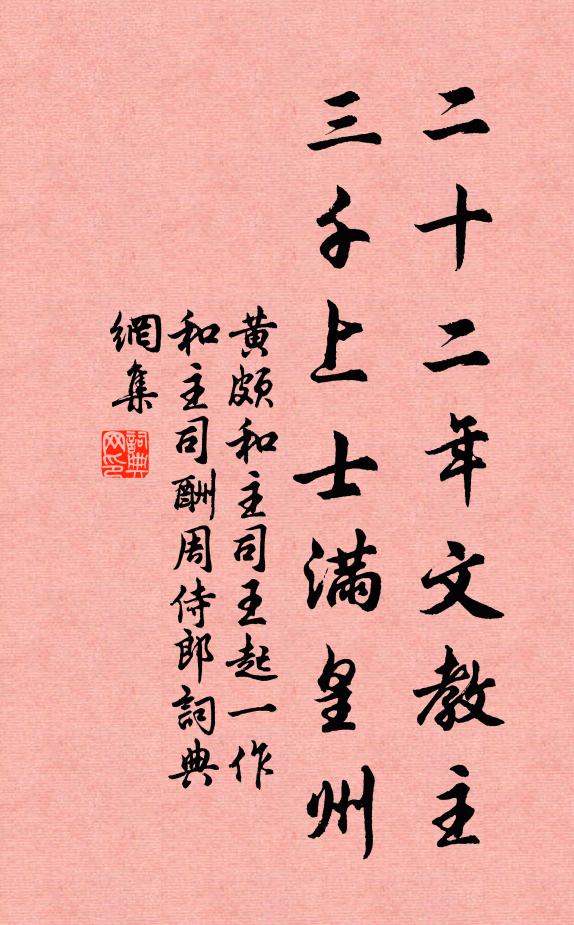 二十二年文教主
三千上士滿皇州
黃頗和主司王起一作
和主司酬周侍郎詞典
網集
詞典網印